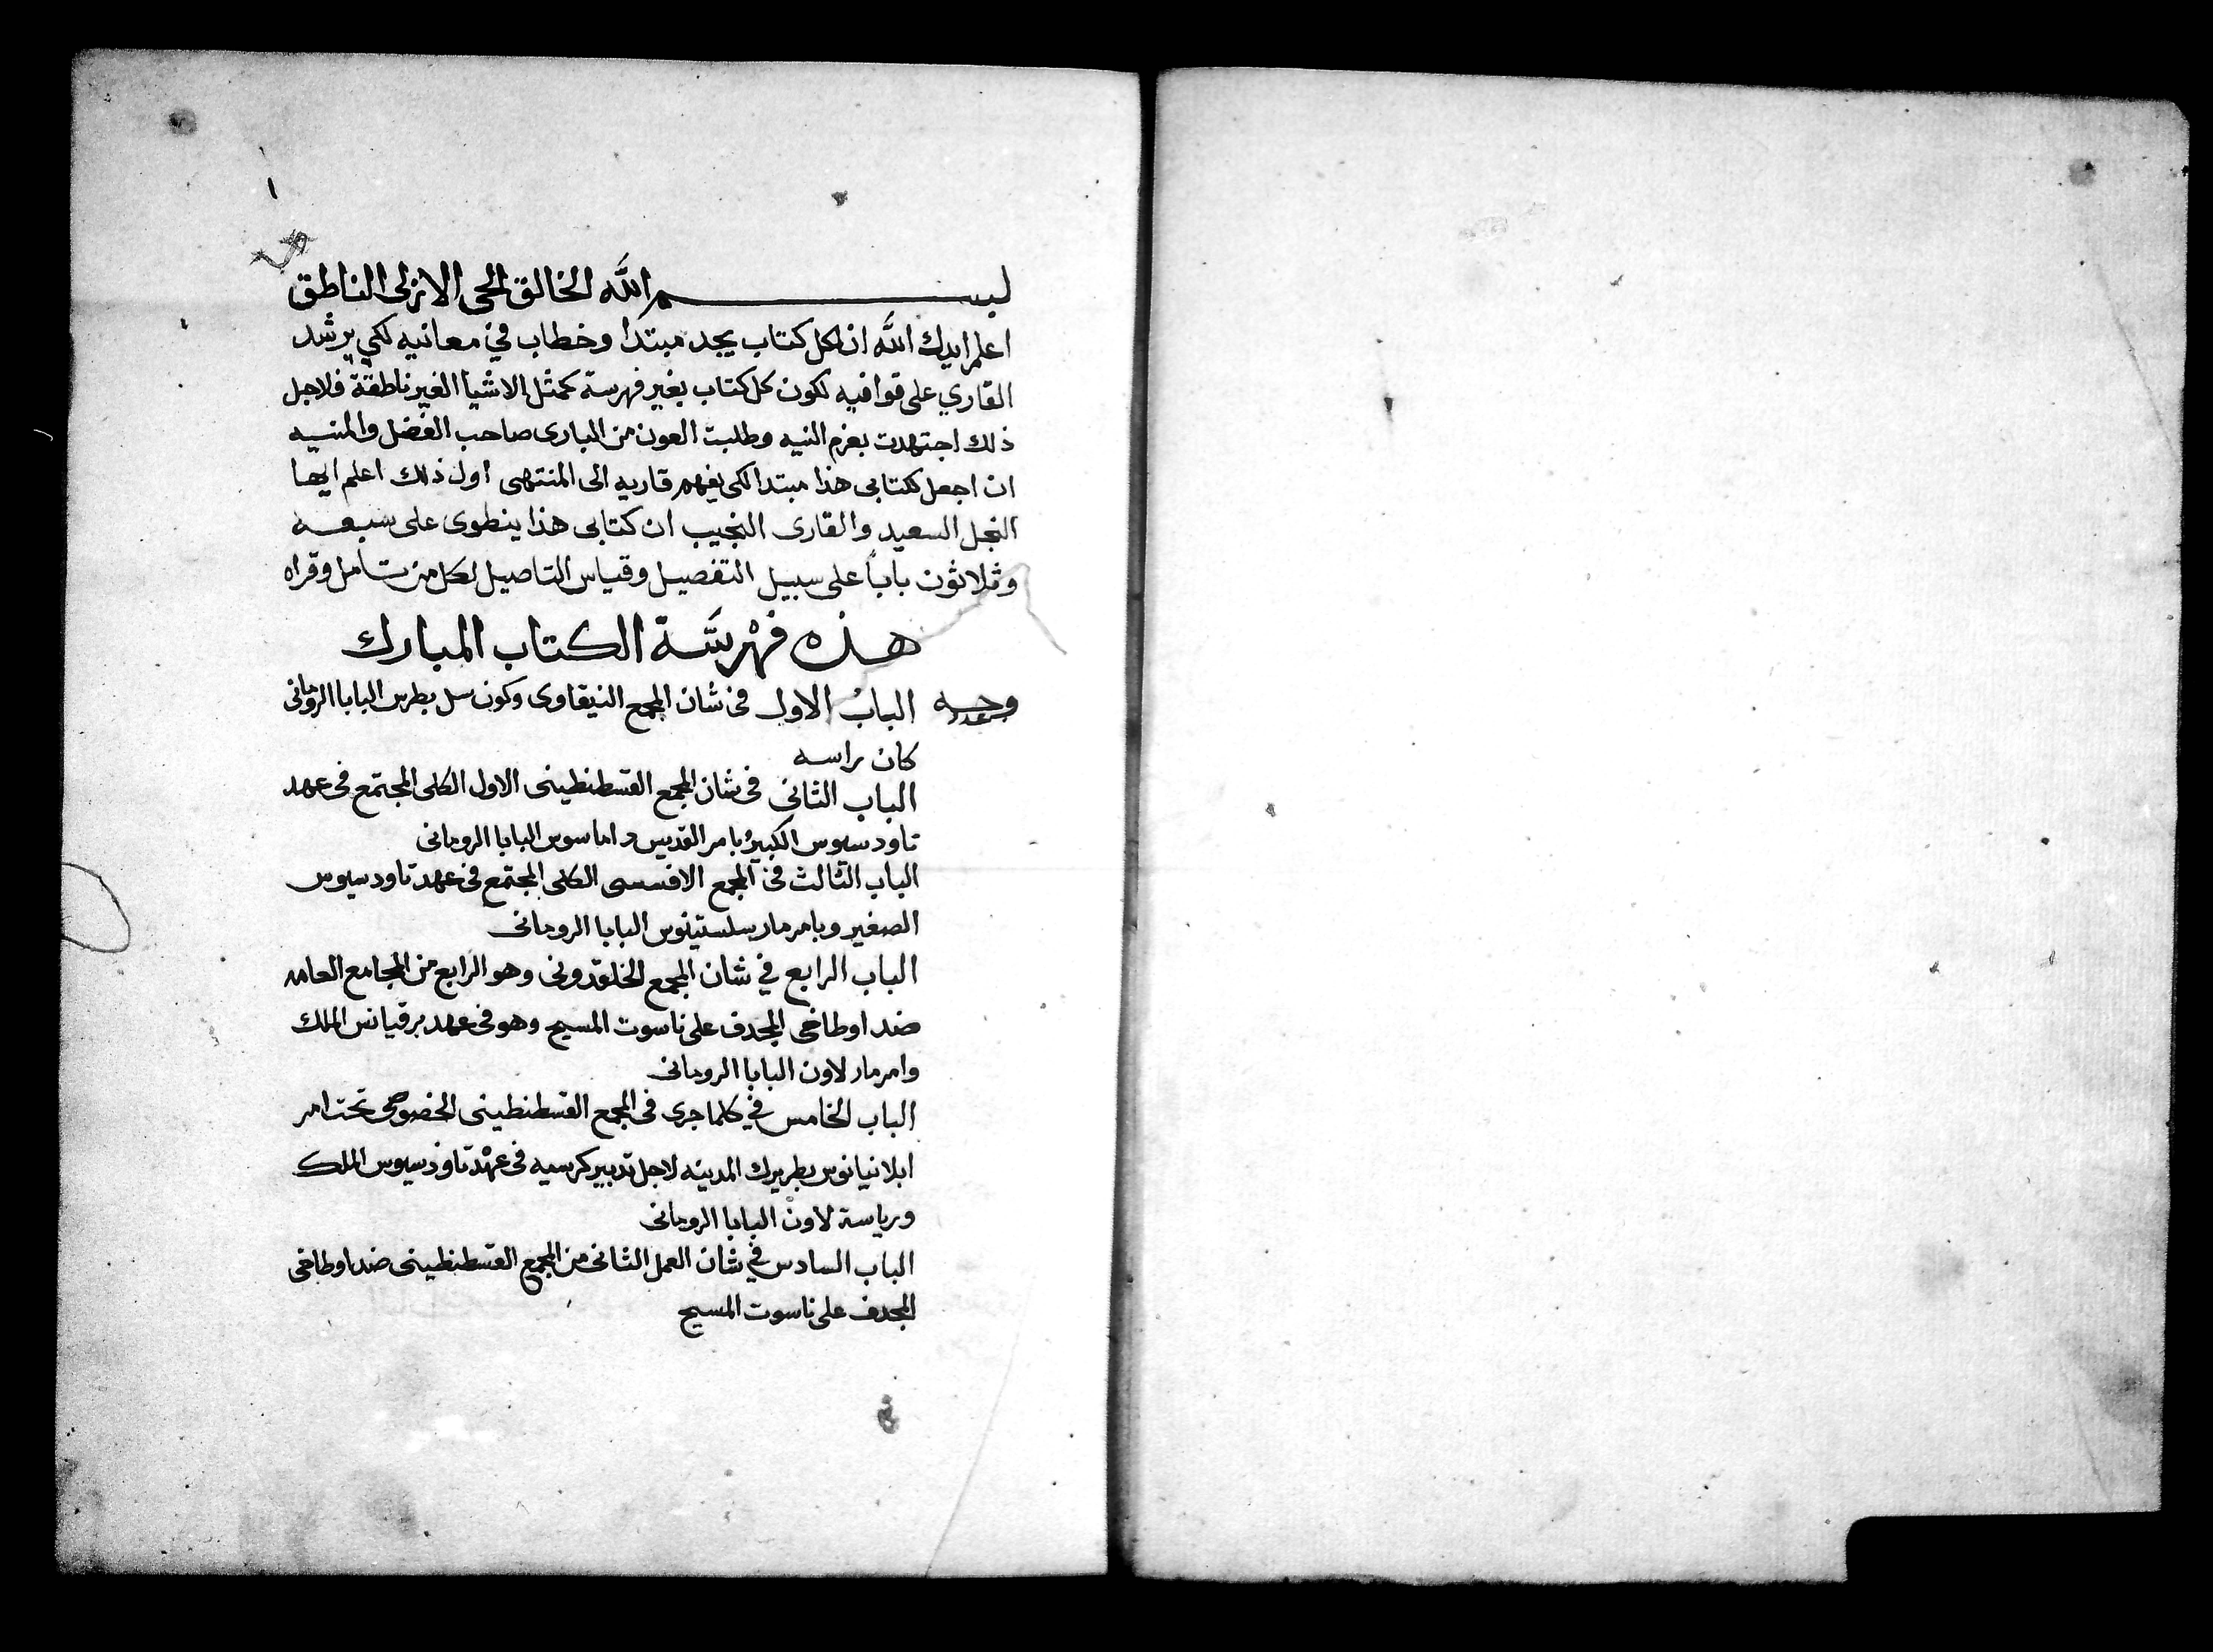 ١
بسم الله الخالق الحى الازلى الناطق
اعلم ايدك الله ان لكل كتاب يجد مبتدا وخطاب في معانيه لكي يرشد
القاري على قوافيه لكون كل كتاب بغير فهرسة كمثل الاشيا الغير ناطقة فلاجل
ذلك اجتهدت بعزم النيه وطلبت العون من البارى صاحب الفضل والمنيه
ان اجعل لكتابى هذا مبتدا لكى يفهم قاريه الى المنتهى اول ذلك اعلم ايها
النجل السعيد والقارى النجيب ان كتابى هذا ينطوى على سبعه
وثلاثون باباً على سبيل التفصيل وقياس التاصيل لكل من تامل وقراه
هذه فهرسة الكتاب المبارك
وجه الباب الاول فى شان المجمع النيقاوى وكون سل بطرس البابا الرومانى
كان براسه
الباب الثانى فى شان المجمع القسطنطينى الاول الكلى المجتمع فى عهد
تاودسيوس الكبير بامر القديس داماسوس البابا الرومانى
الباب الثالث فى المجمع الافسسى الكلى المجتمع فى عهد تاودسيوس
الصغير وبامر مار سلستينوس البابا الرومانى
الباب الرابع في شان المجمع الخلقدونى وهو الرابع من المجامع العامه
ضد اوطاخى المجدف على ناسوت المسيح وهو فى عهد مرقيانس الملك
وامر مار لاون البابا الرومانى
الباب الخامس في كلما جرى فى المجمع القسطنطينى الخصوصى تحت امر
ابلانيانوس بطريرك المدينه لاجل تدبير كرسيه فى عهد تاودسيوس الملك
ورياسة لاون البابا الرومانى
الباب السادس في شان العمل الثانى من المجمع القسطنطينى ضد اوطاخى
المجدف على ناسوت المسيح